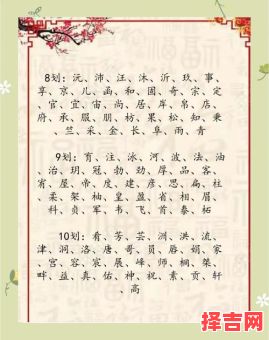 8划：沅、沛、汪、沐、沂、玖、事、
享、京、儿、函、和、固、奇、宗、定
、官、宜、宙、尚、居、岸、帛、店、
府、承、服、朋、枋、果、松、知、秉
、竺、采、金、长、阜、雨、青
9划：育、注、泳、河、波、法、油
、治、玥、冠、勃、劲、厚、品、客、
宥、屋、帝、度、建、彦、思、扁、柱
、柔、架、柚、皇、盈、省、相、眉、
、科、贞、军、书、飞、首、泰、柘
10划：肴、芳、芸、洲、洪、流、
津、洞、洛、唐、哥、员、唇、娟、家
、宫、容、宸、展、峰、师、桐、桀、
畔、益、真、佑、神、祝、素、贡、轩
、高
择吉网